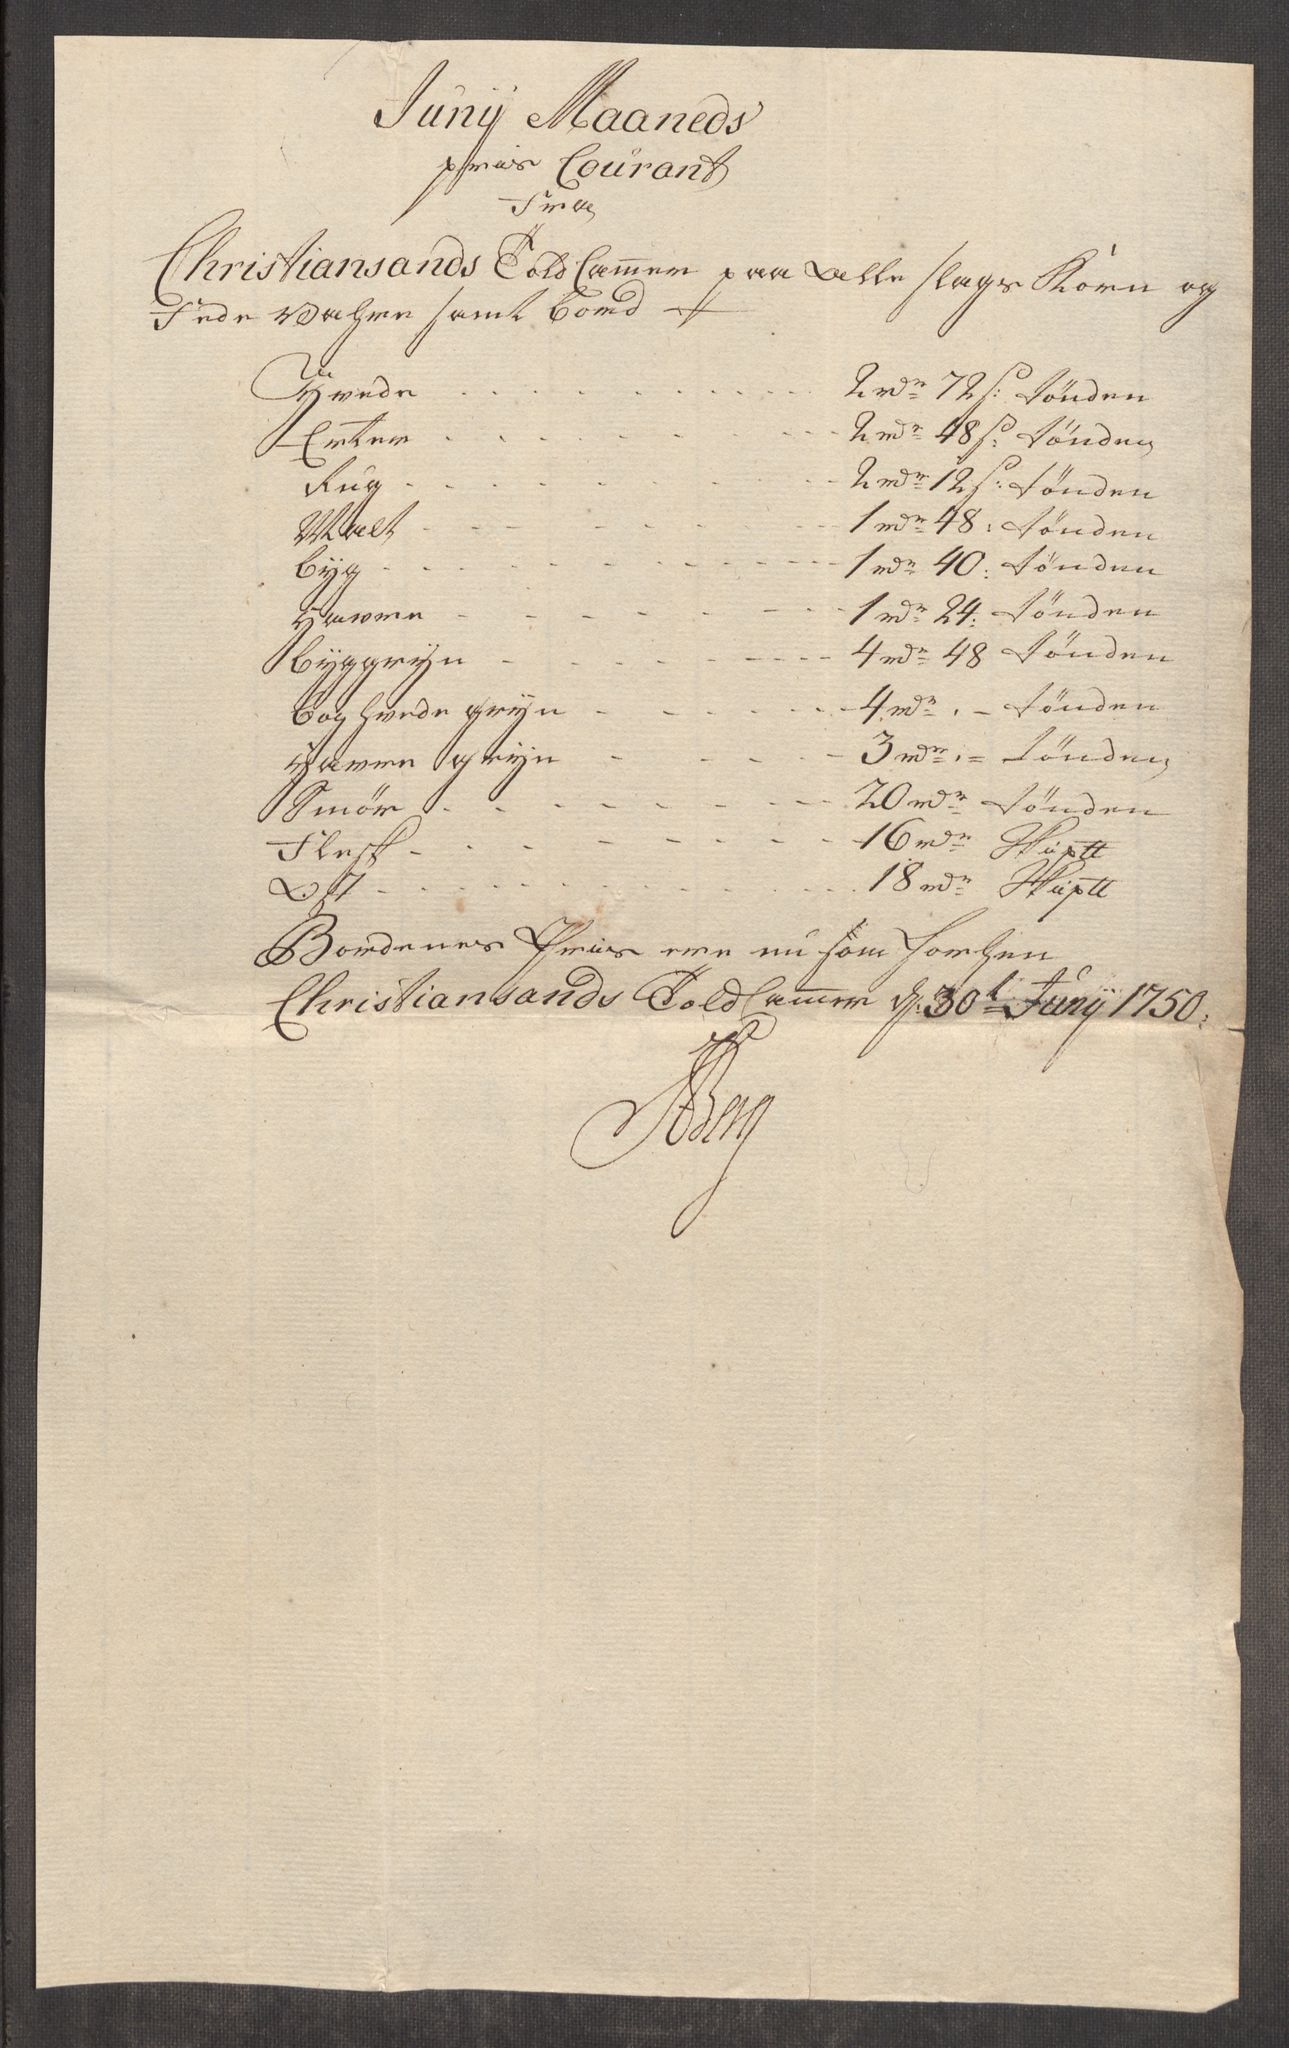 Junij Maaneds
priis Courant
Fra
Christiansands Told Cam̅er paa Alle slags Korn og
Fede Vahre samt bord
Hvede . . . . . . . . . . 2 rdr 72 s: tönden
Erter . . . . . . . . . . 2 rdr 48 s: tönden
Rug . . . . . . . . . . 2 rdr 12 s: tönden
Malt . . . . . . . . . . 1 rdr 48: tönden
byg . . . . . . . . . . 1 rdr 40: tönden
Havre . . . . . . . . . . 1 rdr 24: tönden
byggrÿn . . . . . . . . 4 rdr 48 tönden
bog hvede grÿn . . . . . . 4 rdr . - tönden
Havre grÿn . . . . . . 3 rdr . = tönden
Smör . . . . . . . . 20 rdr tönden
Flesk . . . . . . . . 16 rdr Skiptt
Ost . . . . . . . . . . 18 rdr Skiptt
Bordenes Priis ere nu som forhen
Christiansands Told Cam̅er d. 30t Junij 1750.
Berg